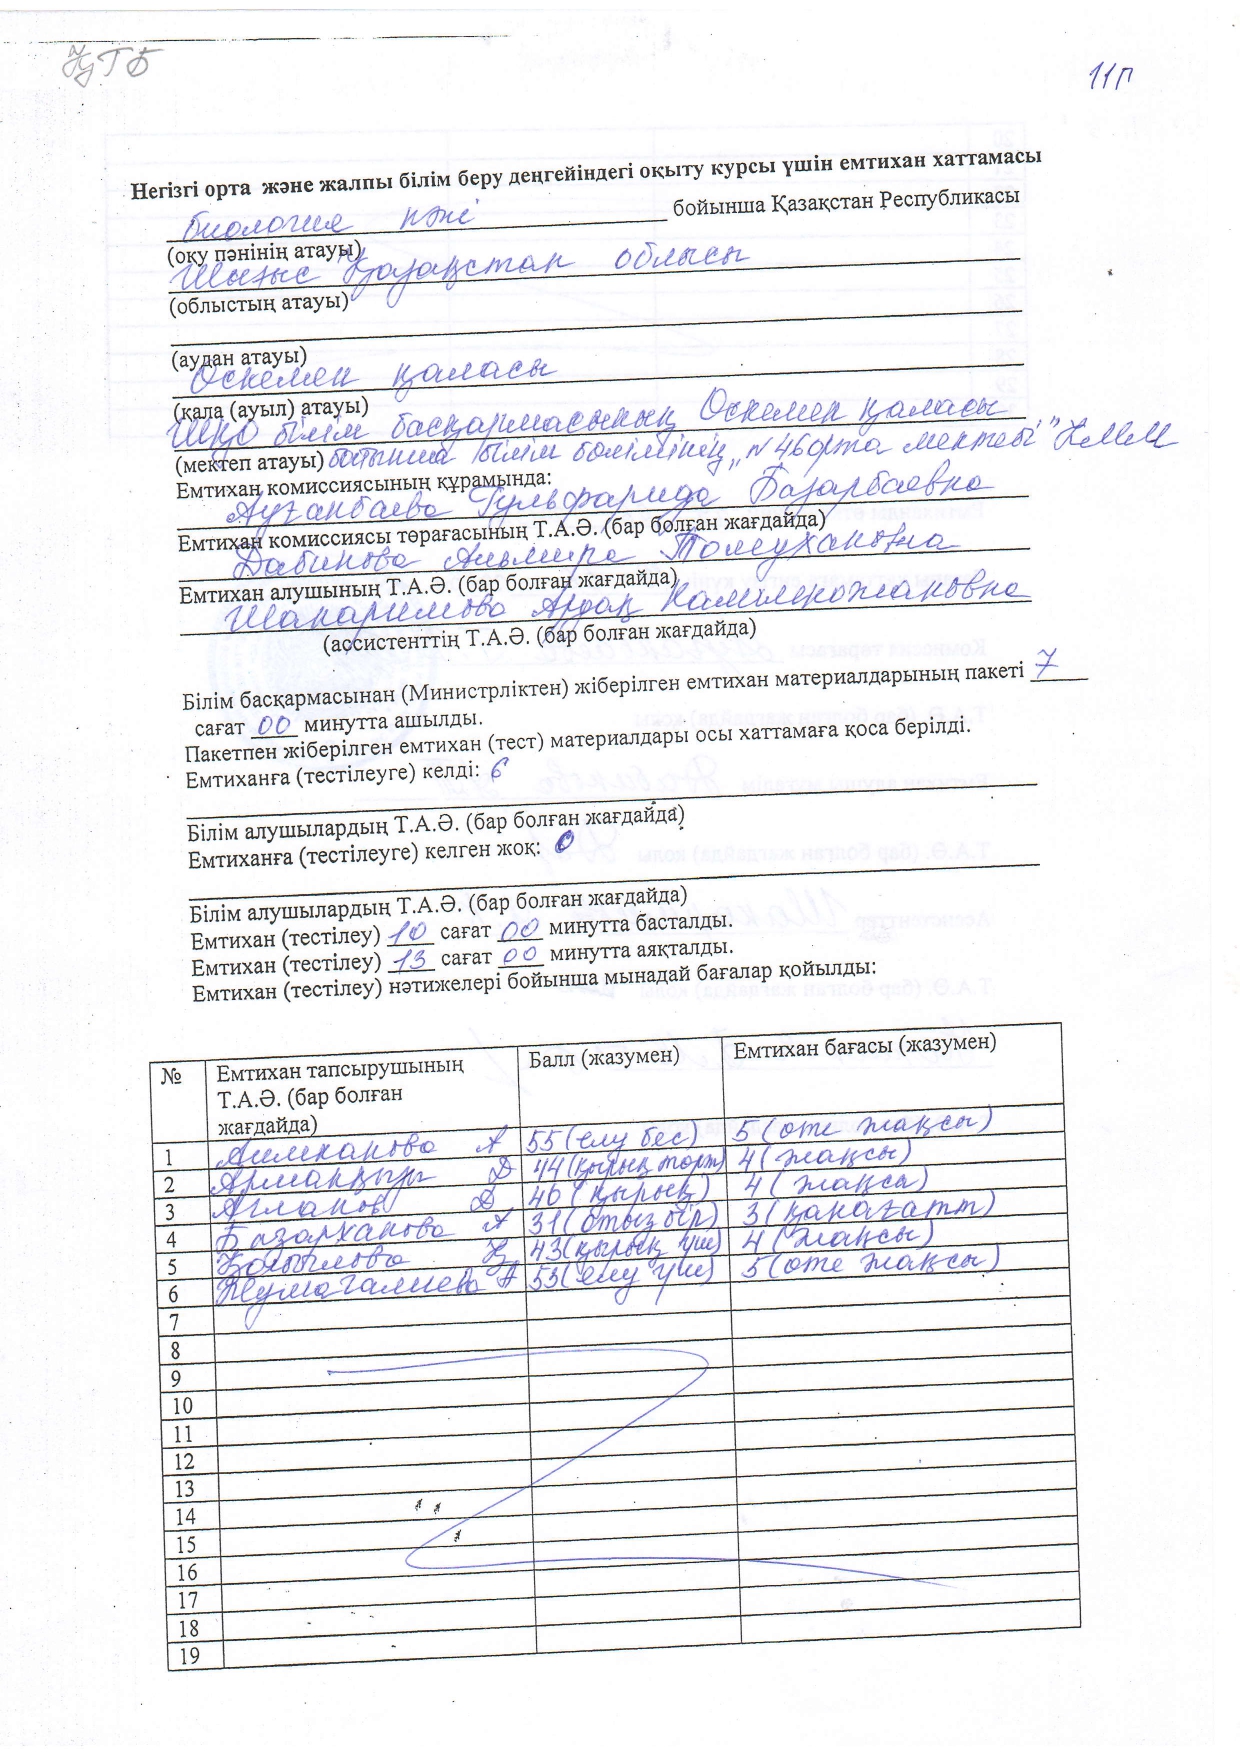 ҚГБ
11П
Негізгі орта және жалпы білім беру деңгейіндегі оқыту курсы үшін емтихан хаттамасы
биология пәні бойынша Қазақстан Республикасы
(оқу пәнінің атауы)
Шығыс Қазақстан облысы
(облыстың атауы)
(аудан атауы)
Өскемен қаласы
(қала (ауыл) атауы)
ШҚО білім басқармасының Өскемен қаласы
(мектеп атауы) бойынша білім бөлімінің "№46 орта мектебі" КММ
Емтихан комиссиясының құрамында:
Ауғанбаева Гульфарида Базарбаевна
Емтихан комиссиясы төрағасының Т.А.Ә. (бар болған жағдайда)
Дабинова Альмира Толеухановна
Емтихан алушының Т.А.Ә. (бар болған жағдайда)
Шакаримова Ардақ Камилкожановна
(ассистенттің Т.А.Ә. (бар болған жағдайда)
Білім басқармасынан (Министрліктен) жіберілген емтихан материалдарының пакеті 7
сағат 00 минутта ашылды.
Пакетпен жіберілген емтихан (тест) материалдары осы хаттамаға қоса берілді.
Емтиханға (тестілеуге) келді: 6
Білім алушылардың Т.А.Ә. (бар болған жағдайда)
Емтиханға (тестілеуге) келген жоқ: 0
Білім алушылардың Т.А.Ә. (бар болған жағдайда)
Емтихан (тестілеу) 10 сағат 00 минутта басталды.
Емтихан (тестілеу) 13 сағат 00 минутта аяқталды.
Емтихан (тестілеу) нәтижелері бойынша мынадай бағалар қойылды:
№ Емтихан тапсырушының Т.А.Ә. (бар болған жағдайда) Балл (жазумен) Емтихан бағасы (жазумен)
1 Алимханова А 55 (елу бес) 5 (өте жақсы)
2 Арманқызы Д 44 (қырық төрт) 4 (жақсы)
3 Асланов Д 40 (қырық) 4 (жақсы)
4 Базарханова А 31 (отыз бір) 3 (қанағатт)
5 Қабылова Қ 43 (қырық үш) 4 (жақсы)
6 Жумагалиева А 53 (елу үш) 5 (өте жақсы)
7
8
9
10
11
12
13
14
15
16
17
18
19